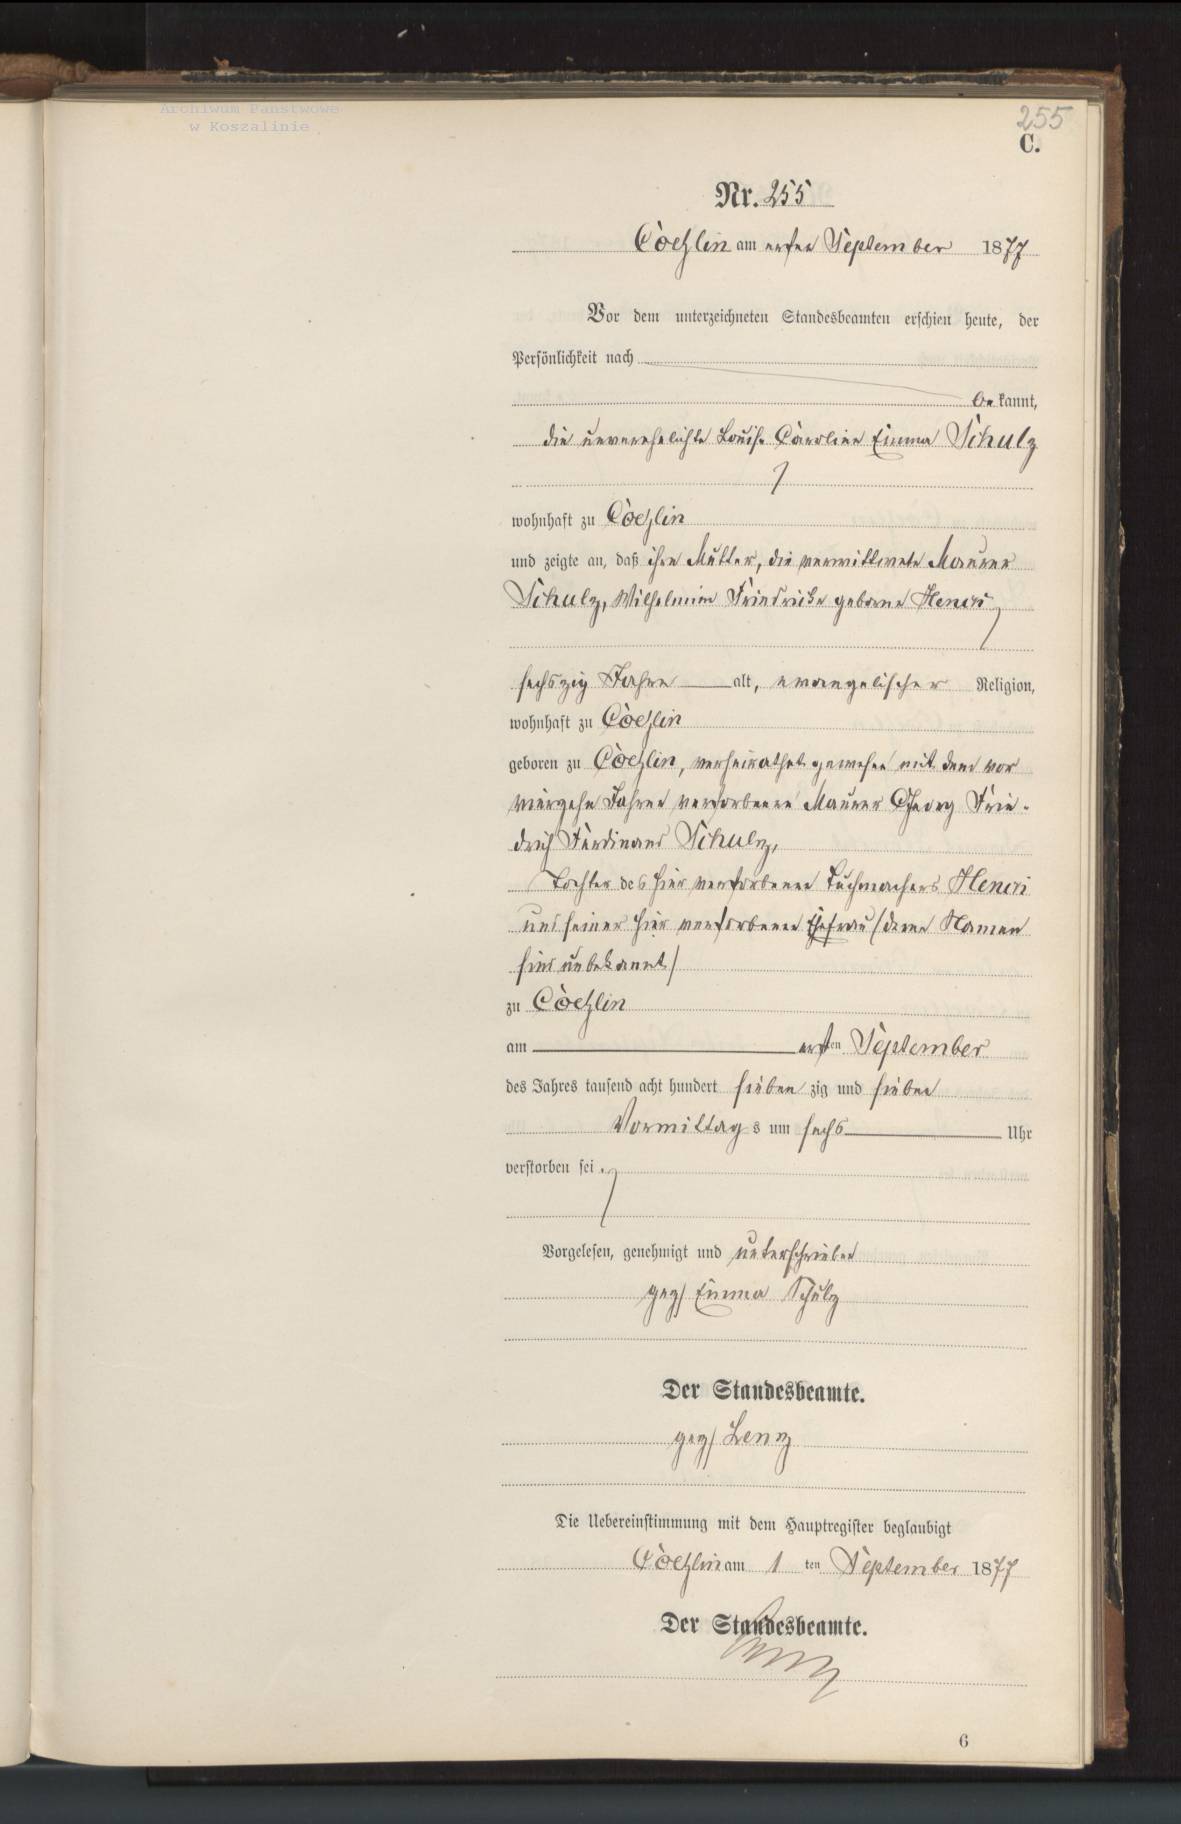 Archiwum Państwowe
w Koszalinie
255
C.
Nr. 255
Cöslin am ersten September 1877
Vor dem unterzeichneten Standesbeamten erschien heute, der
Persönlichkeit nach
bekannt,
die unverehelichte Louise Caroline Emma Schulz
wohnhaft zu Cöslin
und zeigte an, daß ihre Mutter, die verwittwete Maurer
Schulz, Wilhelmine Friedricke geborne Hencri
sechszig Jahre alt, evangelischer Religion,
wohnhaft zu Cöslin
geboren zu Cöslin, verheirathet gewesen mit dem vor
vierzehn Jahren verstorbenen Maurer Georg Frie-
drich Ferdinand Schulz,
Tochter des hier verstorbenen Tuchmachers Hencri
und seiner hier verstorbenen Ehefrau (deren Namen
sind unbekannt)
zu Cöslin
am ersten September
des Jahres tausend acht hundert siebenzig und sieben
Vormittags um sechs Uhr
verstorben sei.
Vorgelesen, genehmigt und unterschrieben
gez/ Emma Schulz
Der Standesbeamte.
gez/ Lenz
Die Uebereinstimmung mit dem Hauptregister beglaubigt
Cöslin am 1 ten September 1877
Der Standesbeamte.
Lenz
6